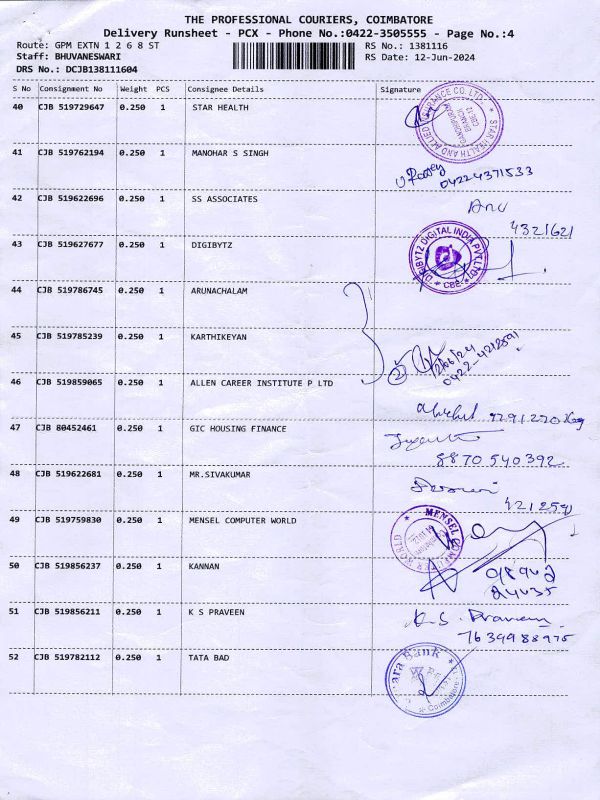 THE PROFESSIONAL COURIERS, COIMBATORE
Delivery Runsheet - PCX - Phone No.:0422-3505555 - Page No.:4
Route: GPM EXTN 1 2 6 8 ST
RS No.: 1381116
Staff: BHUVANESWARI
RS Date: 12-Jun-2024
DRS No.: DCJB138111604
S No Consignment No Weight PCS Consignee Details Signature
40 CJB 519729647 0.250 1 STAR HEALTH
STAR HEALTH AND ALLIED INSURANCE CO. LTD.
GANDHIPURAM BRANCH CBE-12
41 CJB 519762194 0.250 1 MANOHAR S SINGH
04224371533
42 CJB 519622696 0.250 1 SS ASSOCIATES
Anu
4321621
43 CJB 519627677 0.250 1 DIGIBYTZ
DIGIBYTZ DIGITAL INDIA PVT LTD
CBE
44 CJB 519786745 0.250 1 ARUNACHALAM
45 CJB 519785239 0.250 1 KARTHIKEYAN
12/06/24
0422-4212591
46 CJB 519859065 0.250 1 ALLEN CAREER INSTITUTE P LTD
47 CJB 80452461 0.250 1 GIC HOUSING FINANCE
8870540392
48 CJB 519622681 0.250 1 MR.SIVAKUMAR
49 CJB 519759830 0.250 1 MENSEL COMPUTER WORLD
MENSEL COMPUTER WORLD
50 CJB 519856237 0.250 1 KANNAN
51 CJB 519856211 0.250 1 K S PRAVEEN
K.S. Praveen
7639988975
52 CJB 519782112 0.250 1 TATA BAD
Bank
Coimbatore